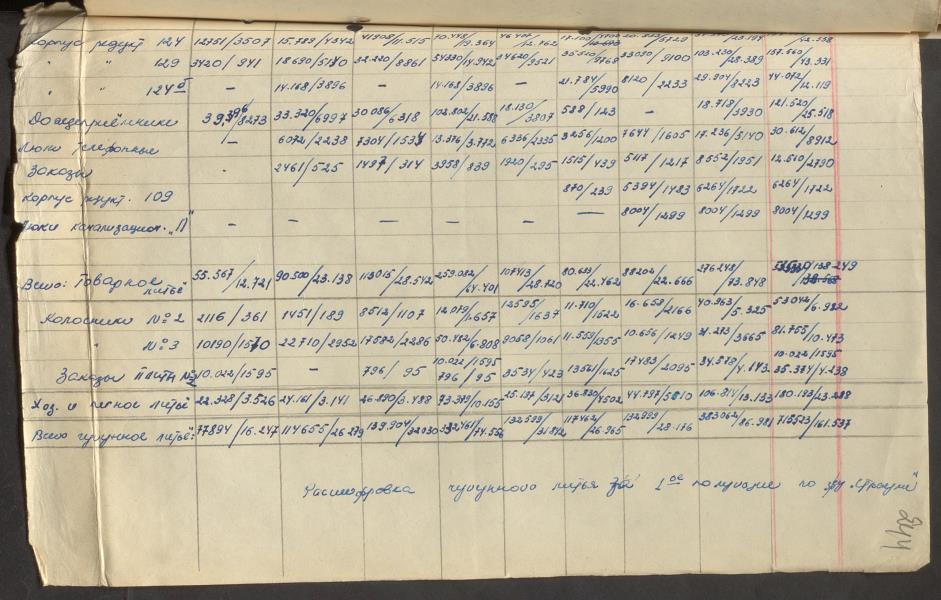 Корпус редукт 124 12751/3507 15.789/4342 41908/11.515 70.448/19.364
" " 129 3420/941 18690/5140 32.220/8861 54330/14.942 34620/9521 35.510/9769 33090/9100 103.230/28.389 157.560/43.331
" " 124 – 14.168/3896 – 14.168/3896 – 21.784/5990 8120/2233 29.904/8223 44.072/12.119
Дождеприёмники /8273 33.320/6997 30.086/6318 102.802/21.588 18.130/3807 588/123 – 18.718/3930 121.520/25.518
Люки телефонные – 6072/2238 7304/1534 13.376/3.772 6336/2335 3256/1200 7644/1605 17.236/5140 30.612/8912
Заказы 2461/525 1497/314 3958/839 1920/295 1515/439 5117/1217 8552/1951 12.510/2790
Корпус редукт. 109 870/239 5394/1483 6264/1722 6264/1722
Люки канализацион. „Л" – – – – – – 8004/1299 8004/1299 8004/1299
Всего: Товарное литьё 55.567/12.721 90500/23.138 113015/28.542 259.082/64.401 107413/28.720 80.633/22.462 88202/22.666 276248/73.848 /138.249
Колосники № 2 2116/361 1451/189 8512/1107 12079/1.657 12595/1637 11.710/1522 16.658/2166 40.963/5.325 53042/6.982
" № 3 10190/1570 22710/2952 17582/2286 50.482/6.808 9058/1061 11.559/1355 10.656/1249 31.273/3665 81.755/10.473
Заказы 10.022/1595 – 796/95 10.022/1595 796/95 3534/423 13561/1625 17483/2095 34.578/4.143 10.022/1595 35.374/4.238
Хоз. и печное литьё 22.328/3.526 24.161/3.141 26.890/3.488 73.379/10.155 25.187/3121 36.830/4502 44.797/5510 106.814/13.133 180.193/23.288
Всего чугунное литьё: 77894/16.247 114655/26279 139.904/32030 332461/74.556 132599/31.842 117462/26.965 132999/28.176 383062/86.981 715523/161.537
Расшифровка чугунного литья за 1ое полугодие по
244